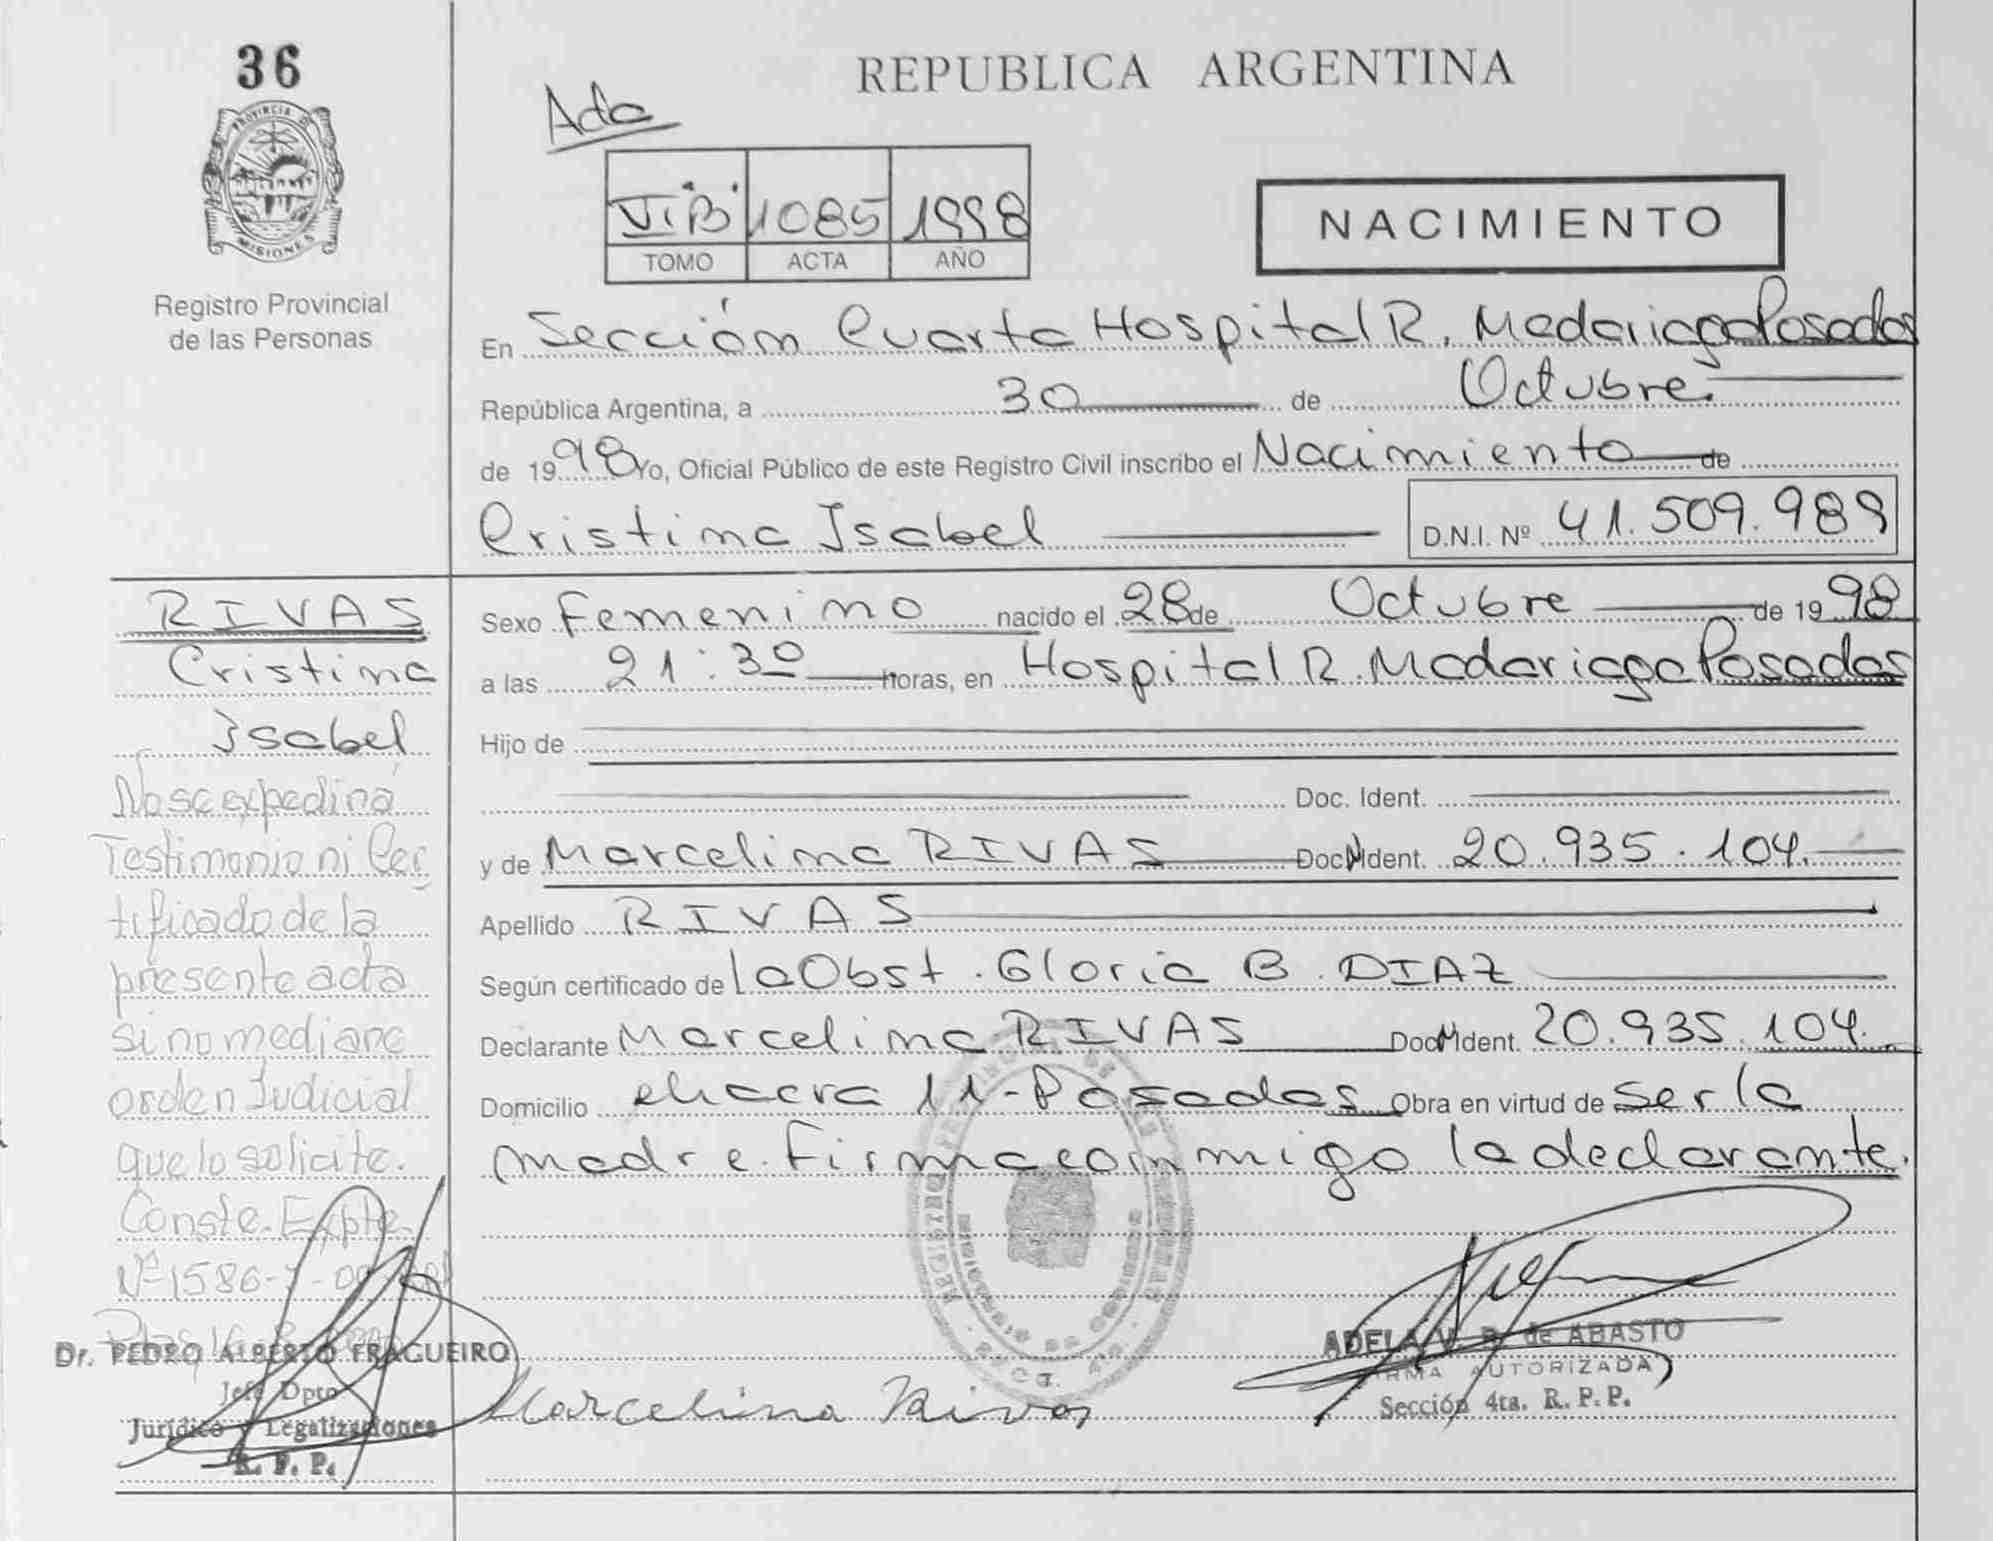 36
PROVINCIA DE
MISIONES
Registro Provincial
de las Personas
REPUBLICA ARGENTINA
Ada
1085 1998
TOMO ACTA AÑO
NACIMIENTO
En Sección Cuarta Hospital R. Madariaga Posadas
República Argentina, a 30 de Octubre
de 1998 Yo, Oficial Público de este Registro Civil inscribo el Nacimiento de
Cristina Isabel D.N.I. Nº 41.509.989
RIVAS
Cristina
Isabel
No se expedirá
Testimonio ni Cer
tificado de la
presente acta
sino mediane
orden Judicial
que lo solicite.
Conste. Expte.
Nº 1586-
Dr. PEDRO ALBERTO FRAGUEIRO
Jefe Dpto
Jurídico y Legalizaciones
R. P. P.
Sexo Femenino nacido el 28 de Octubre de 1998
a las 21:30 horas, en Hospital R. Madariaga Posadas
Hijo de
Doc. Ident.
y de Marcelina RIVAS Doc. Ident. 20.935.104.
Apellido RIVAS
Según certificado de la Obst. Gloria B. DIAZ
Declarante Marcelina RIVAS Doc. Ident. 20.935.104.
Domicilio chacra 11-Posadas Obra en virtud de ser la
madre. Firma conmigo la declarante.
Marcelina Rivas
ADELA V. B. de ABASTO
FIRMA AUTORIZADA
Sección 4ta. R. P. P.